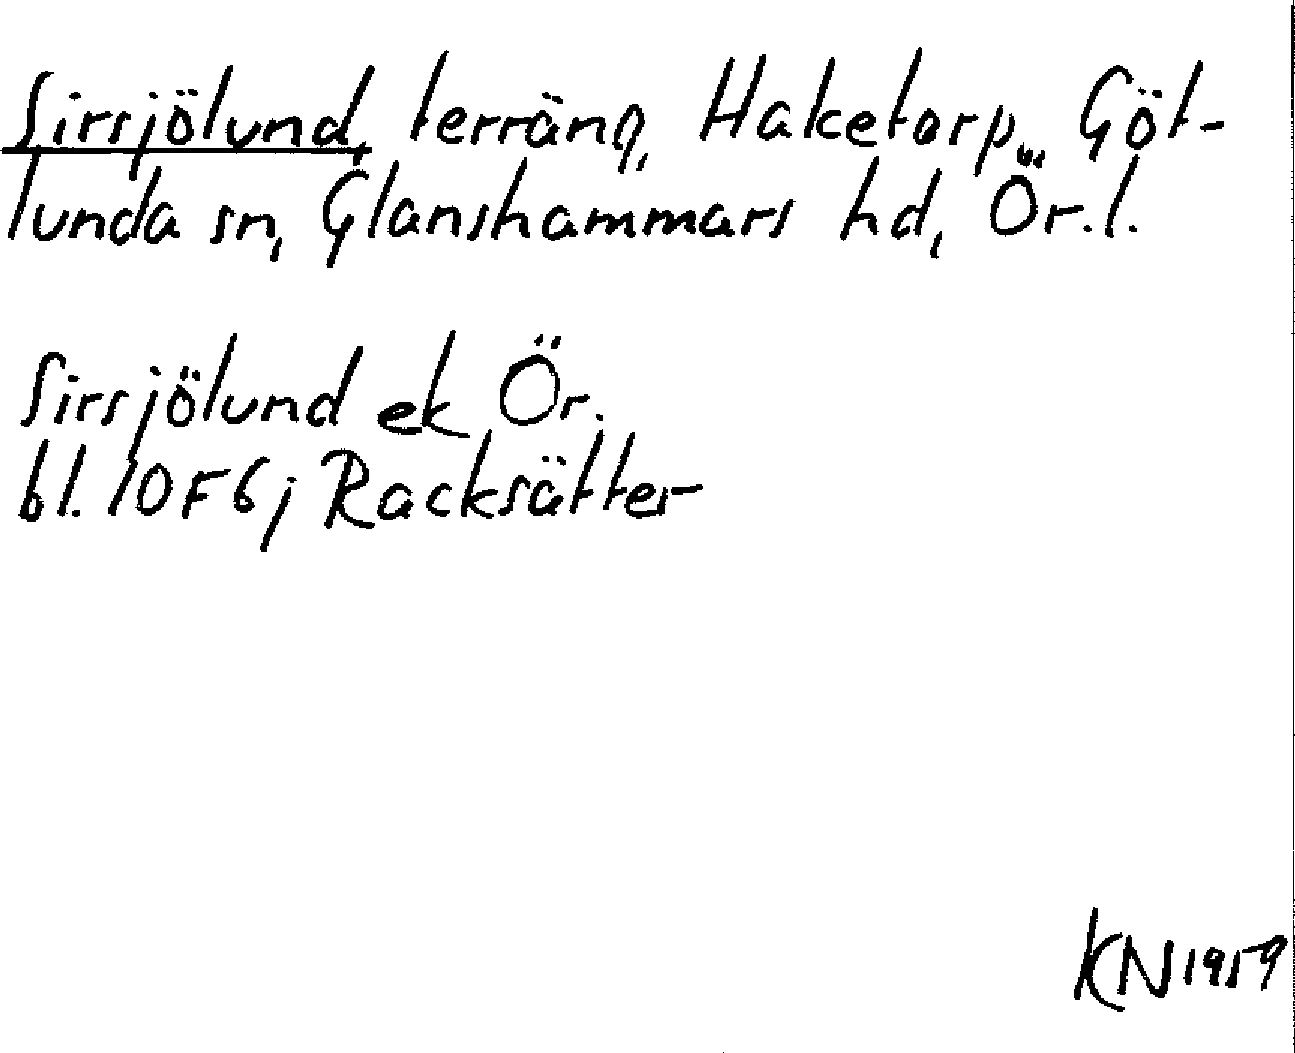 Sirsjölund, terräng, Haketorp, Göt-
lunda sn, Glanshammars hd, Ör.l.
Sirsjölund ek Ör.
bl. 10F6j Racksätter
KN1959